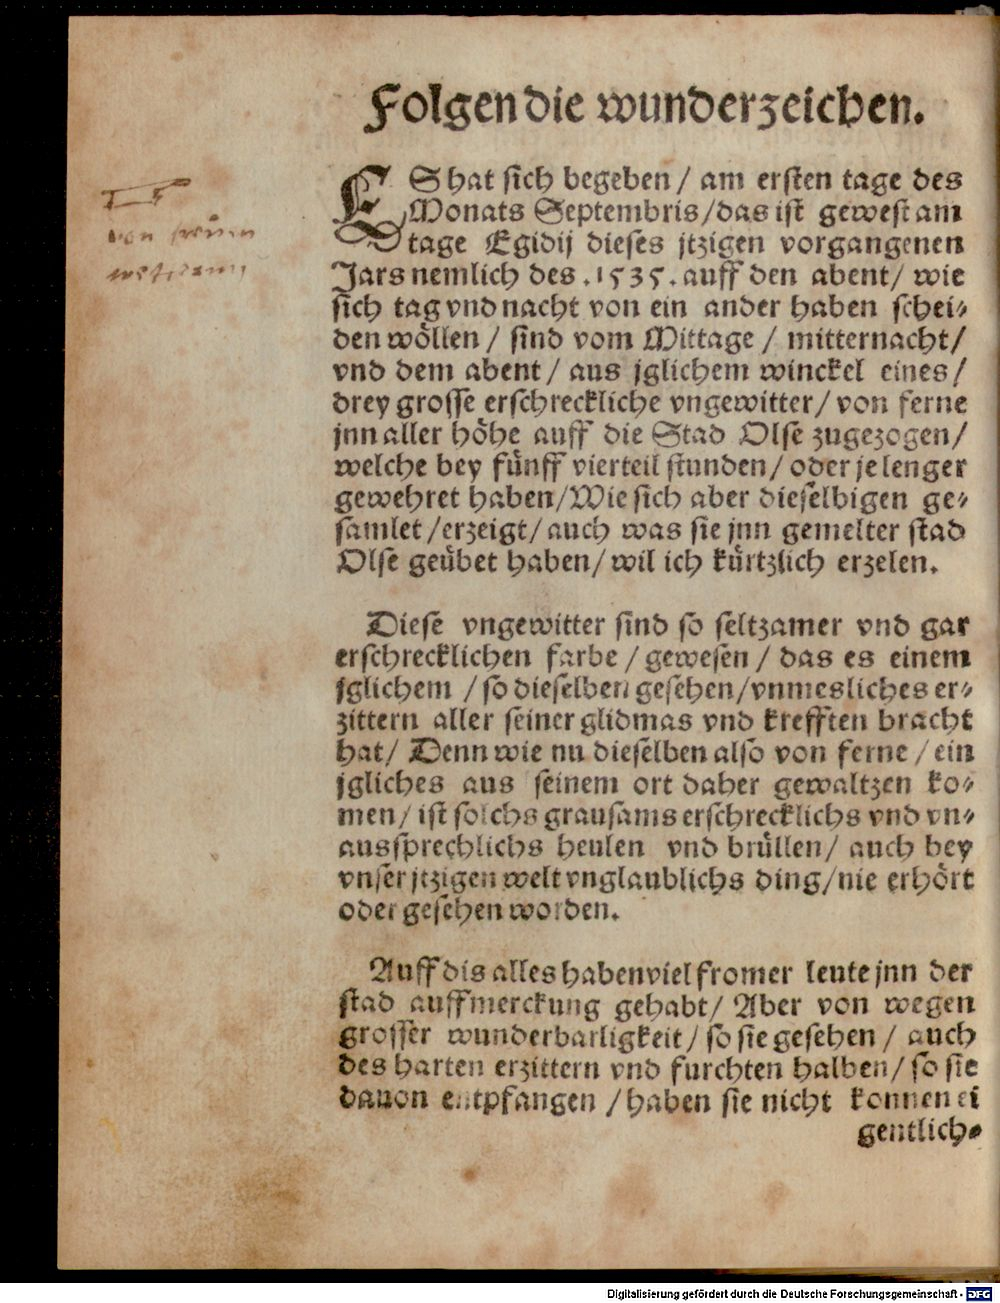 Folgen die wunderzeichen.
ES hat sich begeben / am ersten tage des
Monats Septembris/das ist gewest am
tage Egidij dieses jtzigen vorgangenen
Jars nemlich des .1535. auff den abent/ wie
sich tag vnd nacht von ein ander haben schei-
den wöllen / sind vom Mittage / mitternacht/
vnd dem abent/ aus jglichem winckel eines/
drey grosse erschreckliche vngewitter/ von ferne
jnn aller höhe auff die Stad Olse zugezogen/
welche bey fünff vierteil stunden/ oder je lenger
gewehret haben/Wie sich aber dieselbigen ge-
samlet /erzeigt/ auch was sie jnn gemelter stad
Olse geübet haben/ wil ich kürtzlich erzelen.
Diese vngewitter sind so seltzamer vnd gar
erschrecklichen farbe / gewesen / das es einem
jglichem / so dieselben gesehen/vnmesliches er-
zittern aller seiner glidmas vnd krefften bracht
hat/ Denn wie nu dieselben also von ferne / ein
jgliches aus seinem ort daher gewaltzen ko-
men/ ist solchs grausams erschrecklichs vnd vn-
aussprechlichs heulen vnd brüllen/ auch bey
vnser jtzigen welt vnglaublichs ding/nie erhört
oder gesehen worden.
Auff dis alles haben viel fromer leute jnn der
stad auffmerckung gehabt/ Aber von wegen
grosser wunderbarligkeit/ so sie gesehen / auch
des harten erzittern vnd furchten halben/ so sie
dauon entpfangen /haben sie nicht konnen ei
gentlich-
von
Digitalisierung gefördert durch die Deutsche Forschungsgemeinschaft - DFG